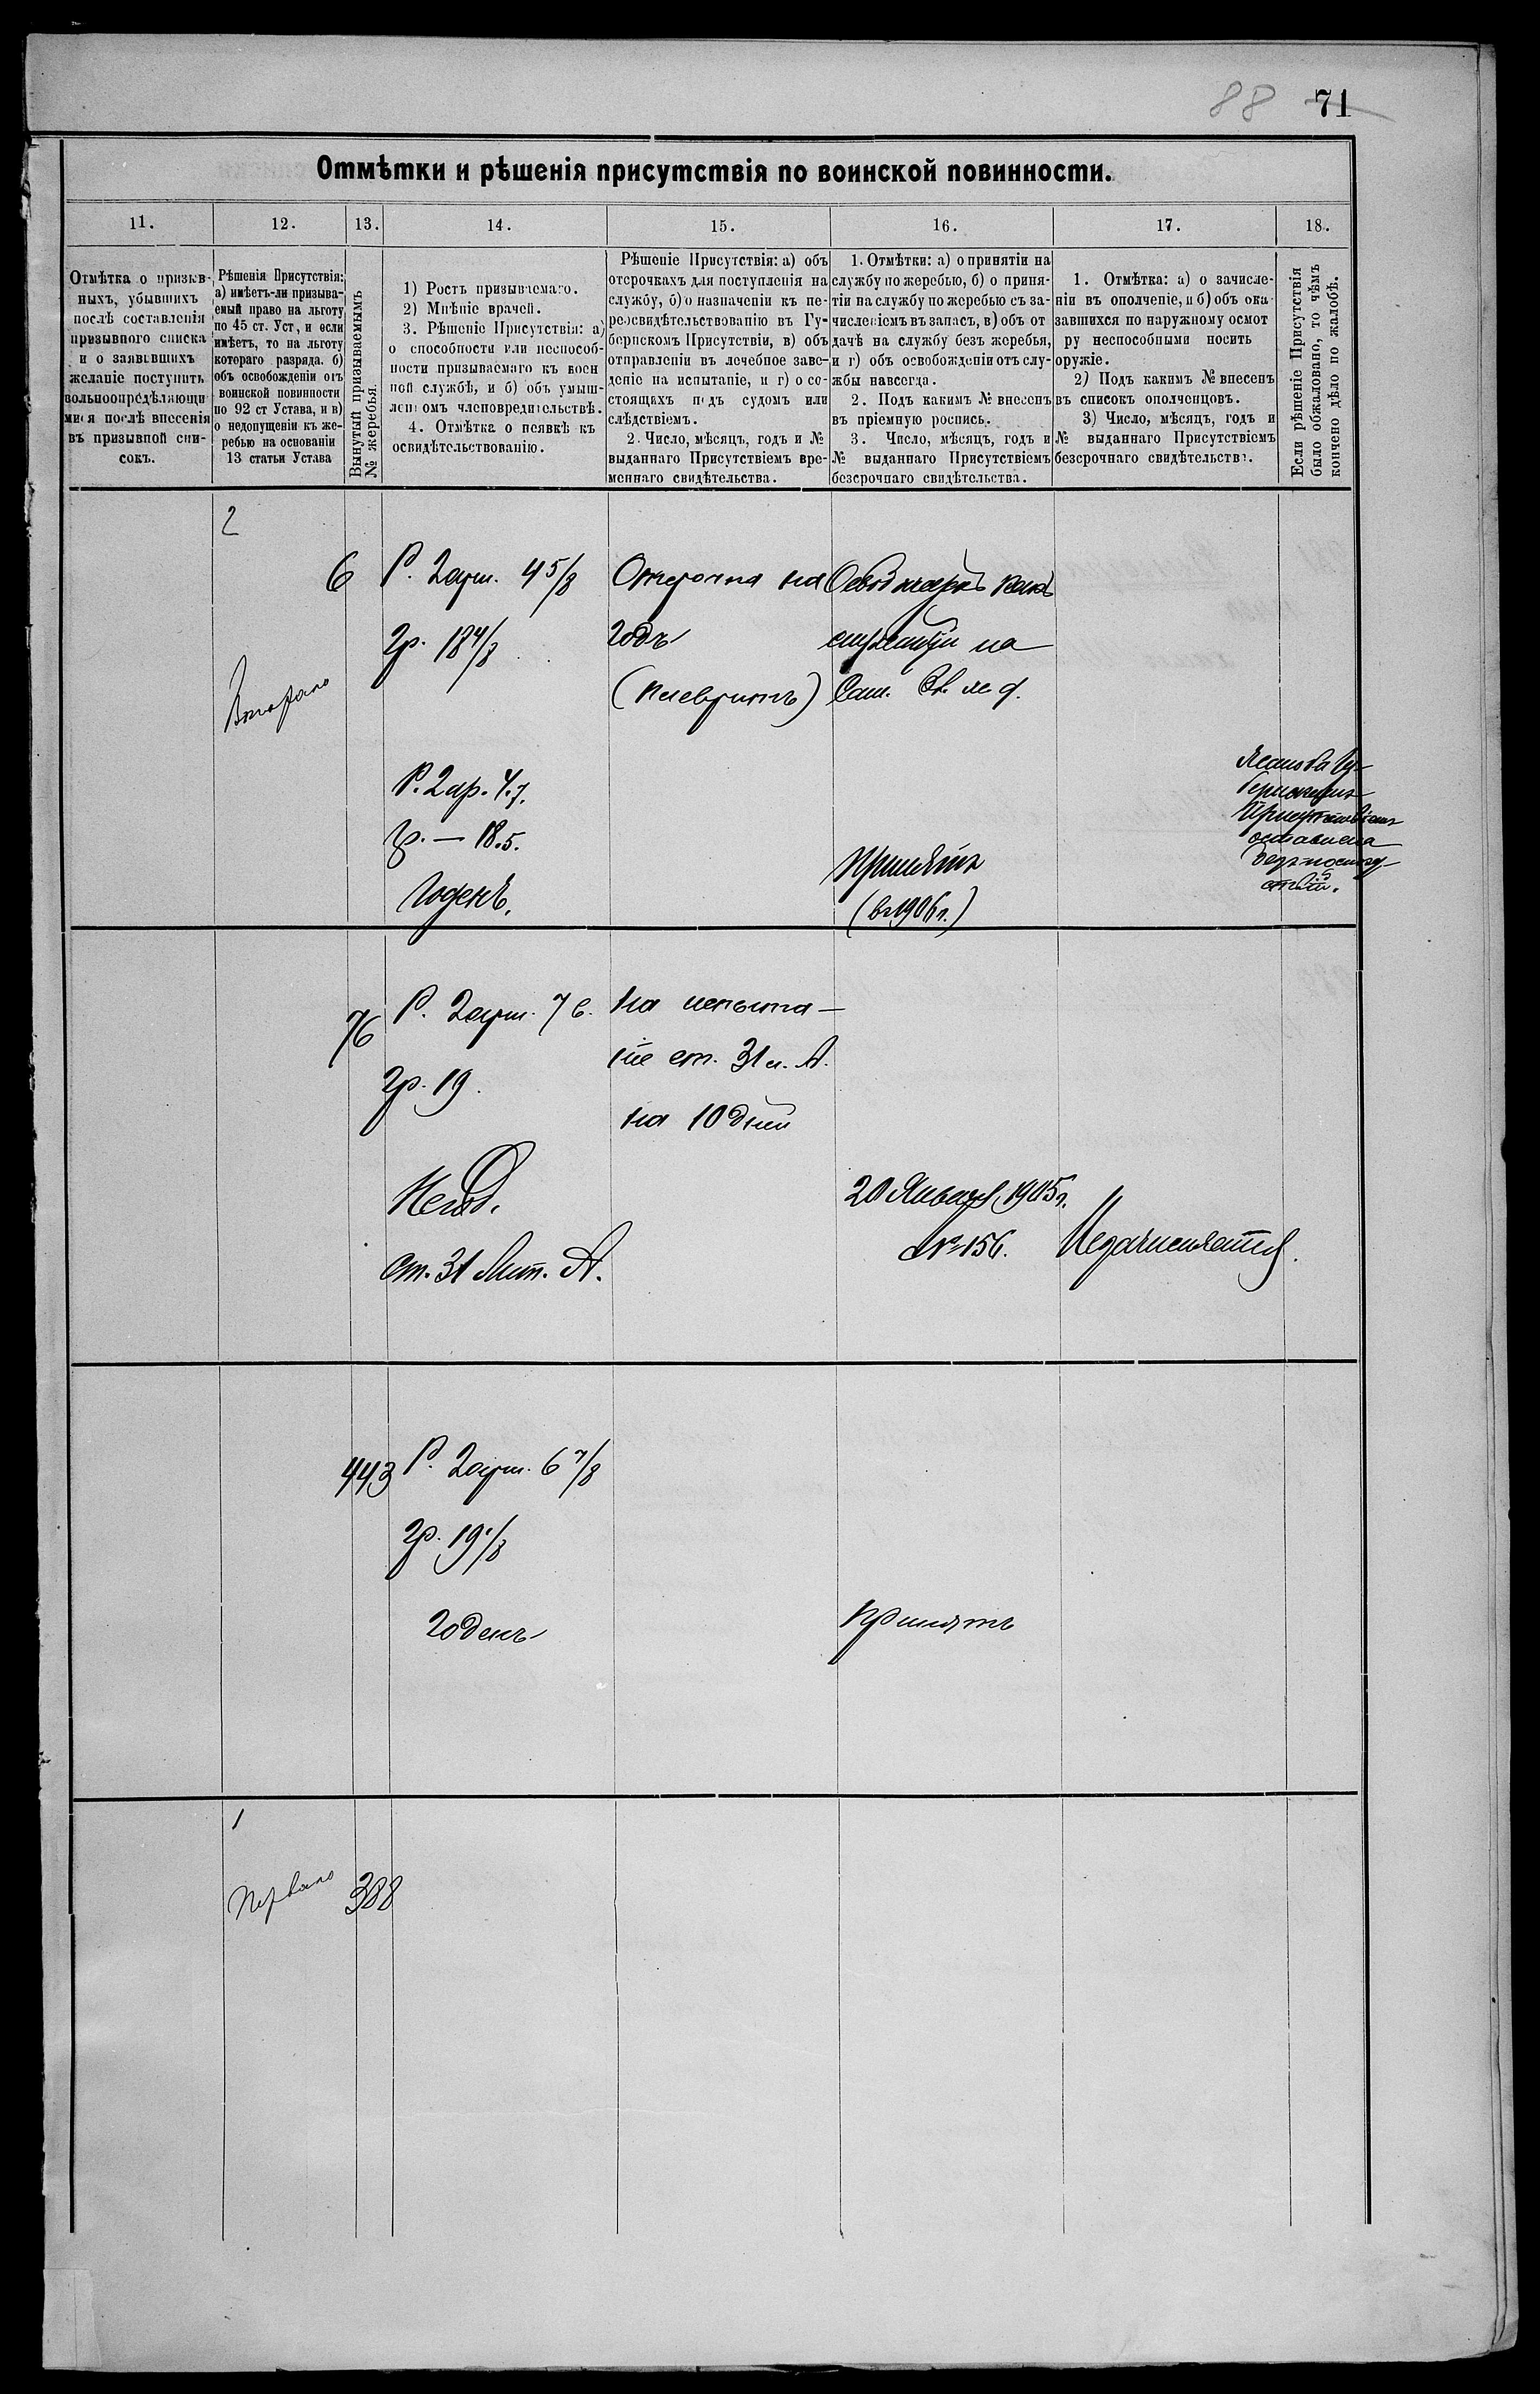 88 71
Отмѣтки и рѣшенія присутствія по воинской повинности.
11. 12. 13. 14. 15. 16. 17. 18.
Отмѣтка о призыв-
ныхъ, убывшихъ
послѣ составленія
призывного списка
и о заявившихъ
желаніе поступить
вольноопредѣляющи
мися послѣ внесенія
въ призывной спи-
сокъ.
Рѣшенія Присутствія:
а) имѣетъ-ли призыва-
емый право на льготу
по 45 ст. Уст, и если
имѣетъ, то на льготу
котораго разряда. б)
объ освобожденіи отъ
воинской повинности
по 92 ст Устава, и в)
о недопущеніи къ же-
ребью на основаніи
13 статьи Устава
Вынутый призываемымъ
№ жеребья.
1) Ростъ призываемаго.
2) Мнѣніе врачей.
3. Рѣшеніе Присутствія: а)
о способности или неспособ-
ности призываемаго къ воен
ной службѣ, и б) объ умыш-
леномъ членовредительствѣ.
4. Отмѣтка о неявкѣ къ
освидѣтельствованію.
Рѣшеніе Присутствія: а) объ
отсрочкахъ для поступленія на
службу, б) о назначеніи къ пе-
реосвидѣтельствованію въ Гу-
бернскомъ Присутствіи, в) объ
отправленіи въ лечебное заве-
деніе на испытаніе, и г) о со-
стоящихъ подъ судомъ или
слѣдствіемъ.
2. Число, мѣсяцъ, годъ и №
выданнаго Присутствіемъ вре-
меннаго свидѣтельства.
1. Отмѣтки: а) о принятіи на
службу по жеребью, б) о приня-
тіи на службу по жеребью съ за-
численіемъ въ запасъ, в) объ от
дачѣ на службу безъ жеребья,
и г) объ освобожденіи отъ слу-
жбы навсегда.
2. Подъ какимъ № внесенъ
въ пріемную роспись.
3. Число, мѣсяцъ, годъ и
№ выданнаго Присутствіемъ
безсрочнаго свидѣтельства.
1. Отмѣтка: а) о зачисле-
ніи въ ополченіе, и б) объ ока
завшихся по наружному осмот
ру неспособными носить
оружіе.
2) Подъ какимъ № внесенъ
въ списокъ ополченцовъ.
3) Число, мѣсяцъ, годъ и
№ выданнаго Присутствіемъ
безсрочнаго свидѣтельства.
Если рѣшеніе Присутствія
было обжаловано, то чѣмъ
кончено дѣло по жалобѣ.
2
Втораго
6
Р. 2арш. 4 5/8
гр. 18 4/8
Р. 2ар. 4.7.
гр. — 18.5.
Годенъ.
Отсрочка на
годъ
(плевритъ)
Принятъ
(въ 1906 г.)
Жалоба Гу-
бернскимъ
Присутствіемъ
оставлена
безъ послед-
ствій.
76
Р. 2арш. 7 в.
гр. 19.
Негод.
ст. 31 Лит. А.
на испыта-
ніе ст. 31 л. А.
на 10 дней
20 Января 1905 г.
№ 156.
Незачисляется.
443
Р. 2арш. 6 7/8
гр. 19 1/8
годенъ
Принятъ
1
Перваго
388